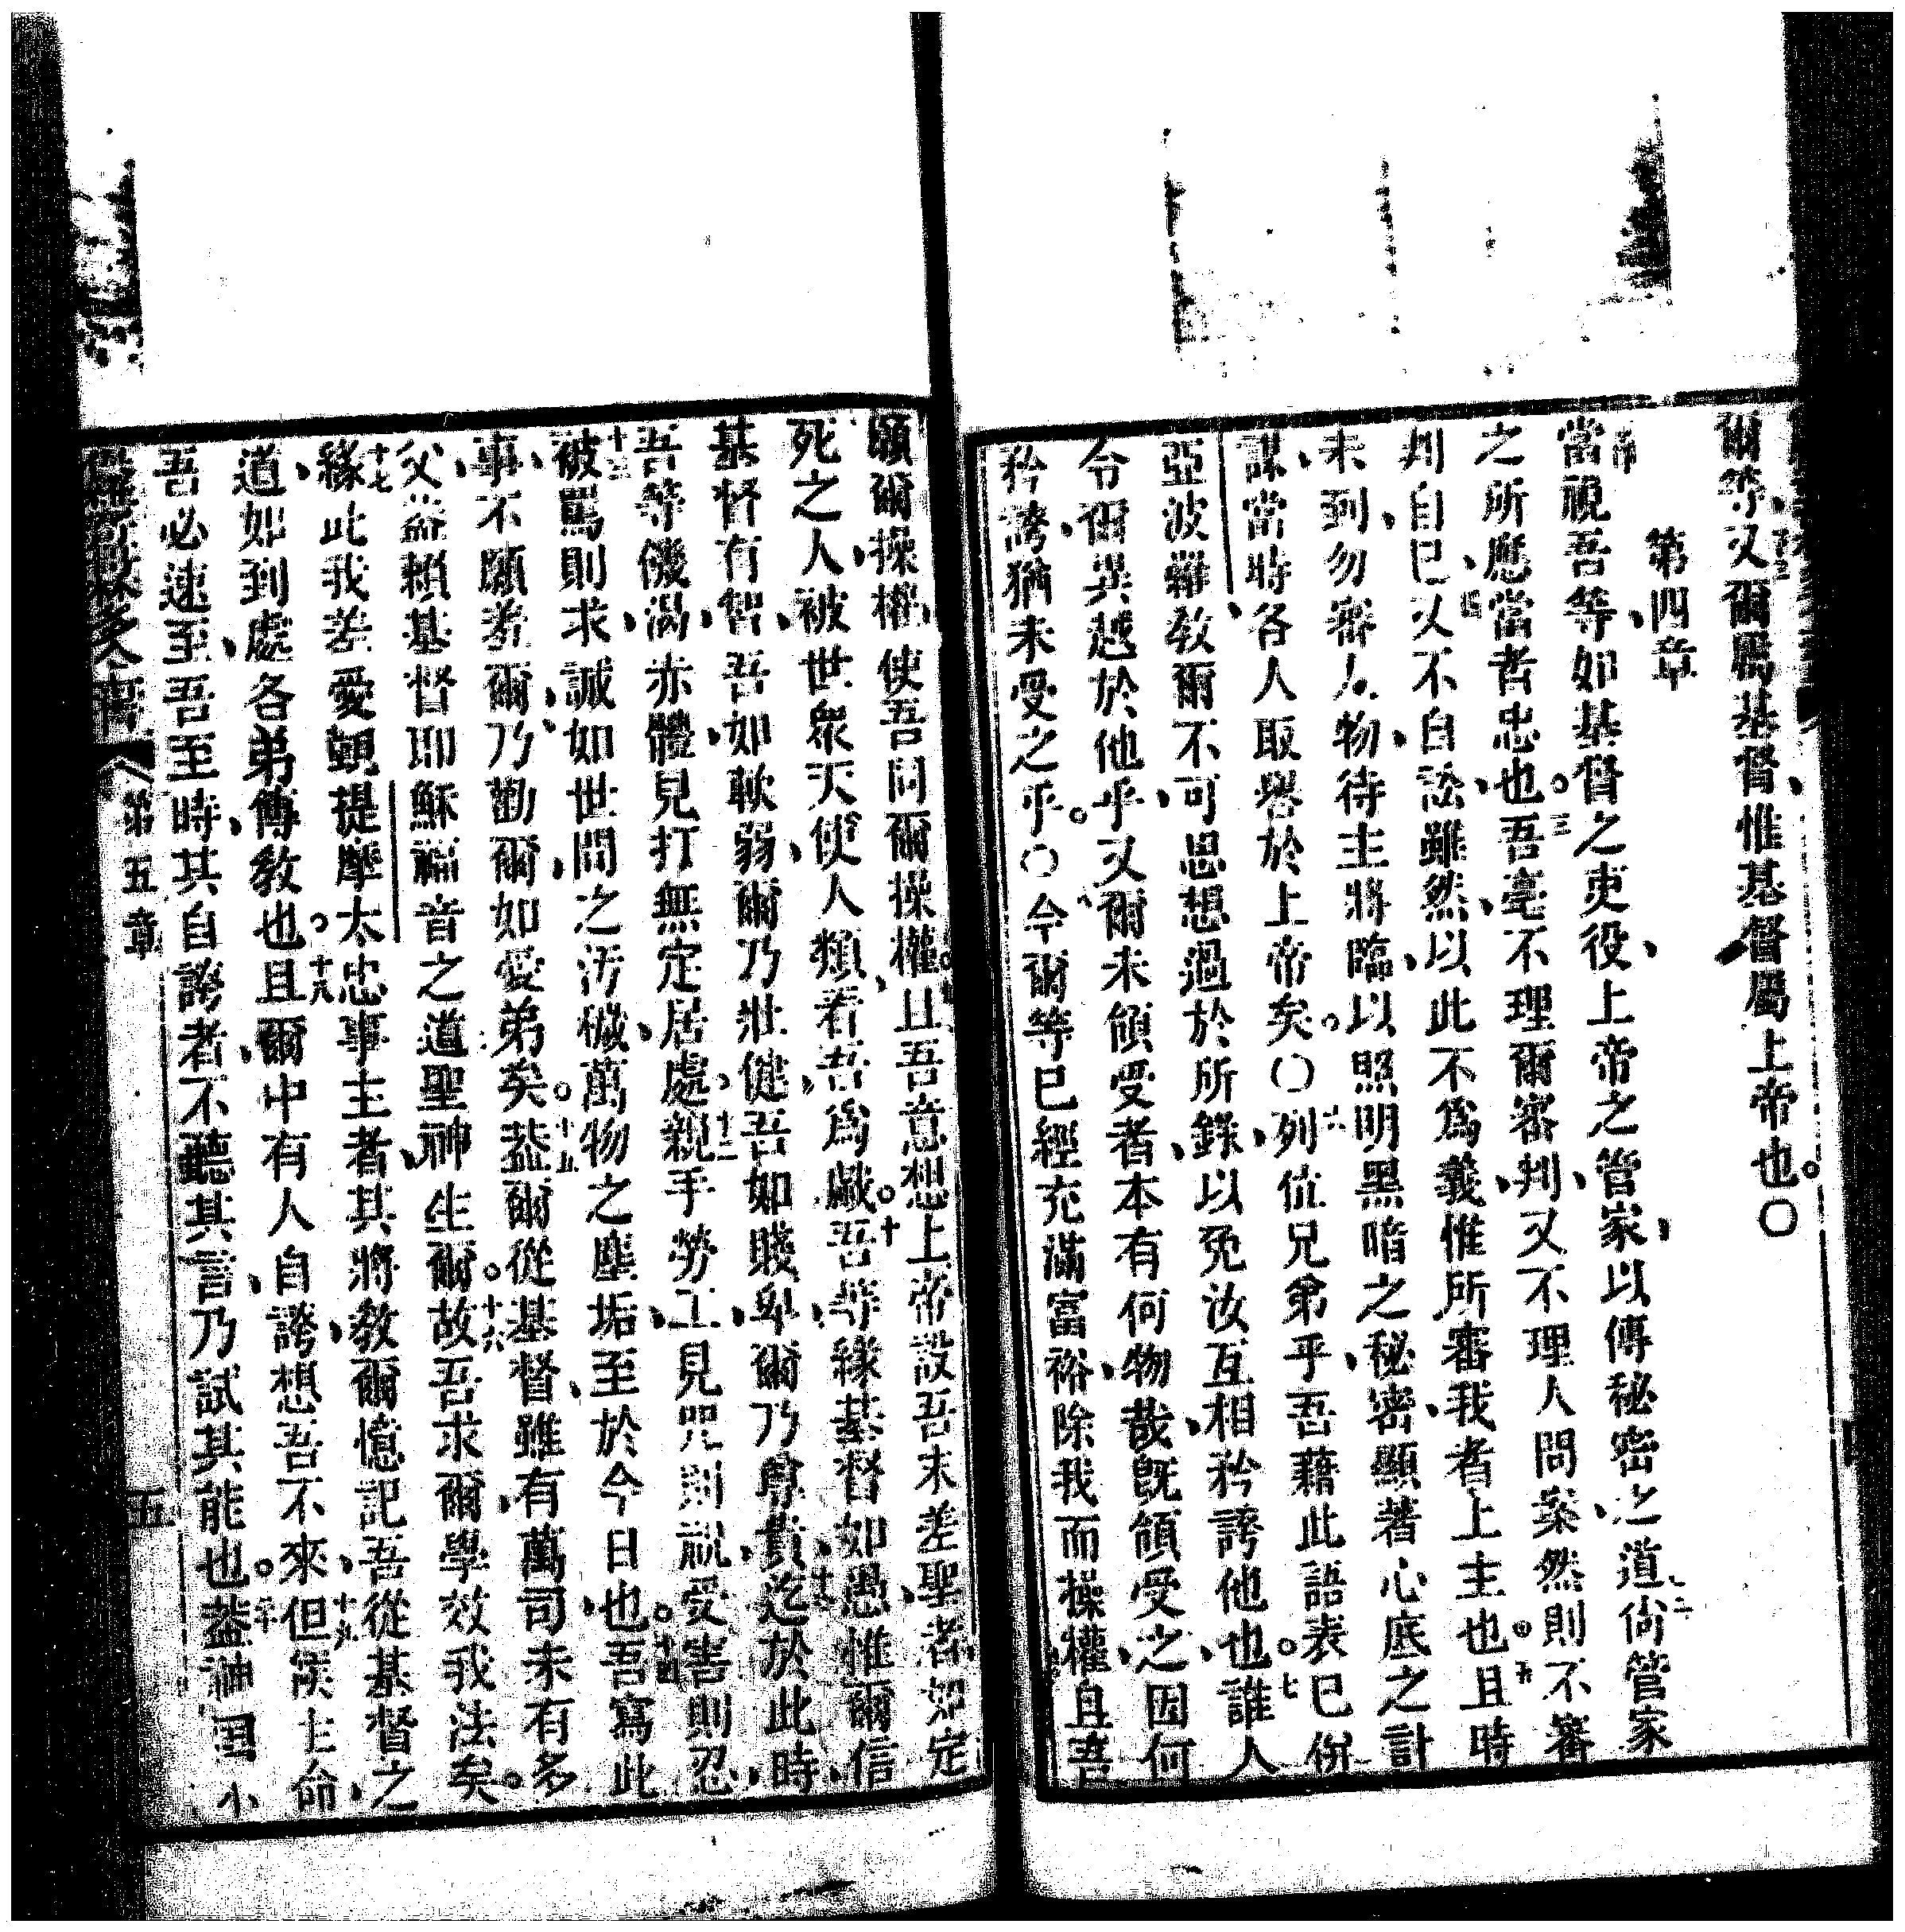 爾等、又爾屬基督、惟基督屬上帝也。〇
第四章
當視吾等、如基督之吏役、上帝之管家、以傳秘密之道、二尚管家
之所應當者忠也。三吾毫不理爾審判、又不理人問案、然則不審
判自己、四又不自訟、雖然、以此不為義、惟所審我者、上主也。五且時
未到、勿審人物、待主將臨、以照明黑暗之秘密、顯著心底之計
謀、當時各人取譽於上帝矣。〇六列位兄弟乎、吾藉此語表己併
亞波羅、教爾不可思想過於所錄、以免汝互相矜誇他也。七誰人
令爾異越於他乎、又爾未領受者、本有何物哉、既領受之、因何
矜誇、猶未受之乎。〇八今爾等已經充滿富裕、除我而操權、且吾
願爾操權、使吾同爾操權。九且吾意想、上帝設吾末差聖者、如定
死之人、被世眾天使人類看吾為戲。十吾等緣基督如愚、惟爾信
基督有智、吾如軟弱、爾乃壯健、吾如賤卑、爾乃尊貴、十一迄於此時、
吾等饑、渴、赤體、見打、無定居處、十二親手勞工、見咒則祝、受害則忍、
十三被罵則求、誠如世間之汚穢、萬物之塵垢、至於今日也。十四吾寫此
事、不願羞爾、乃勸爾、如愛弟矣。十五蓋爾從基督、雖有萬司、未有多
父、蓋賴基督耶穌福音之道、聖神生爾。十六故吾求爾、學效我法矣。
十七緣此我差愛顗提摩太、忠事主者、其將教爾憶記吾從基督之
道、如到處各弟傳教也。十八且爾中有人自誇、想吾不來、十九但俟主命、
吾必速至、吾至時、其自誇者、不聽其言、乃試其能也。二十蓋神國不
第五章
五